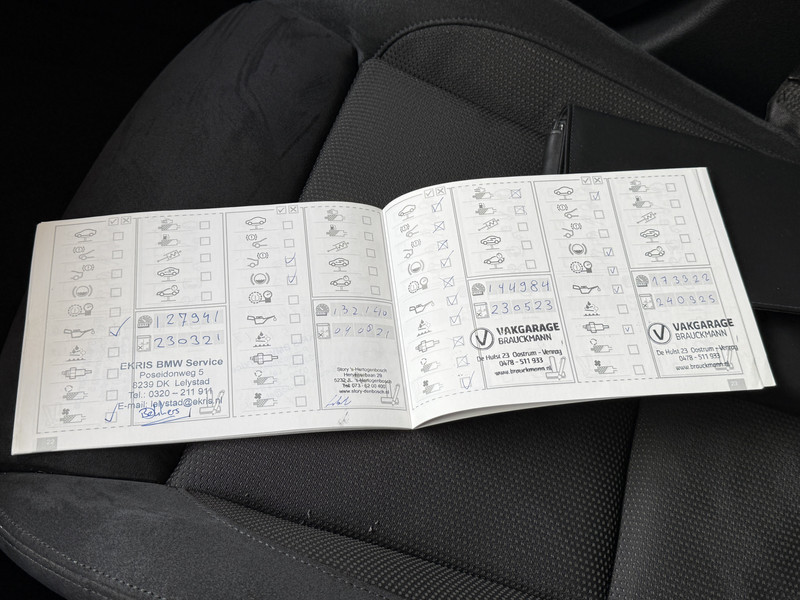 127941
230321
EKRIS BMW Service
Poseidonweg 5
8239 DK Lelystad
Tel.: 0320 - 211 911
E-mail: lelystad@ekris.nl
132140
040821
Story 's-Hertogenbosch
's-Hertogenbosch
www.story-denbosch.nl
144984
230523
V VAKGARAGE
BRAUCKMANN
De Hulst 23 Oostrum - Venray
0478 - 511 933
www.brauckmann.nl
173322
240925
V VAKGARAGE
BRAUCKMANN
De Hulst 23 Oostrum - Venray
0478 - 511 933
www.brauckmann.nl